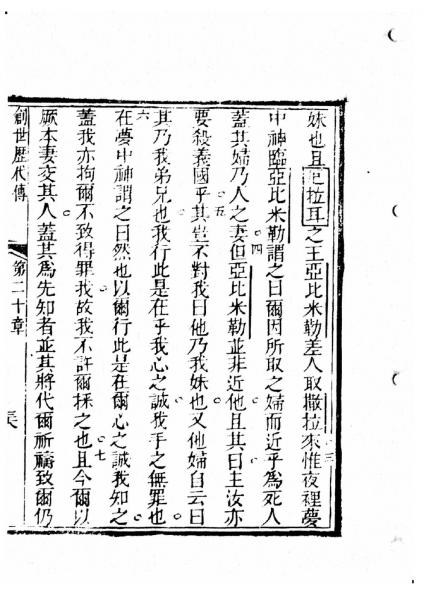 妹也且記拉耳之王亞比米勒差人取撒拉來三惟夜裡夢
中神臨亞比米勒謂之曰爾因所取之婦而近乎為死人
蓋其婦乃人之妻四但亞比米勒並非近他且其曰主汝亦
要殺義國乎五其豈不對我曰他乃我妹也又他婦自云曰
其乃我弟兄也我行此是在乎我心之誠我手之無罪也
六在夢中神謂之曰然也以爾行此是在爾心之誠我知之
蓋我亦拘爾不致得罪我故我不許爾採之也七且今爾以
厥本妻交其人蓋其為先知者並其將代爾祈禱致爾仍
創世歷代傳 第二十章